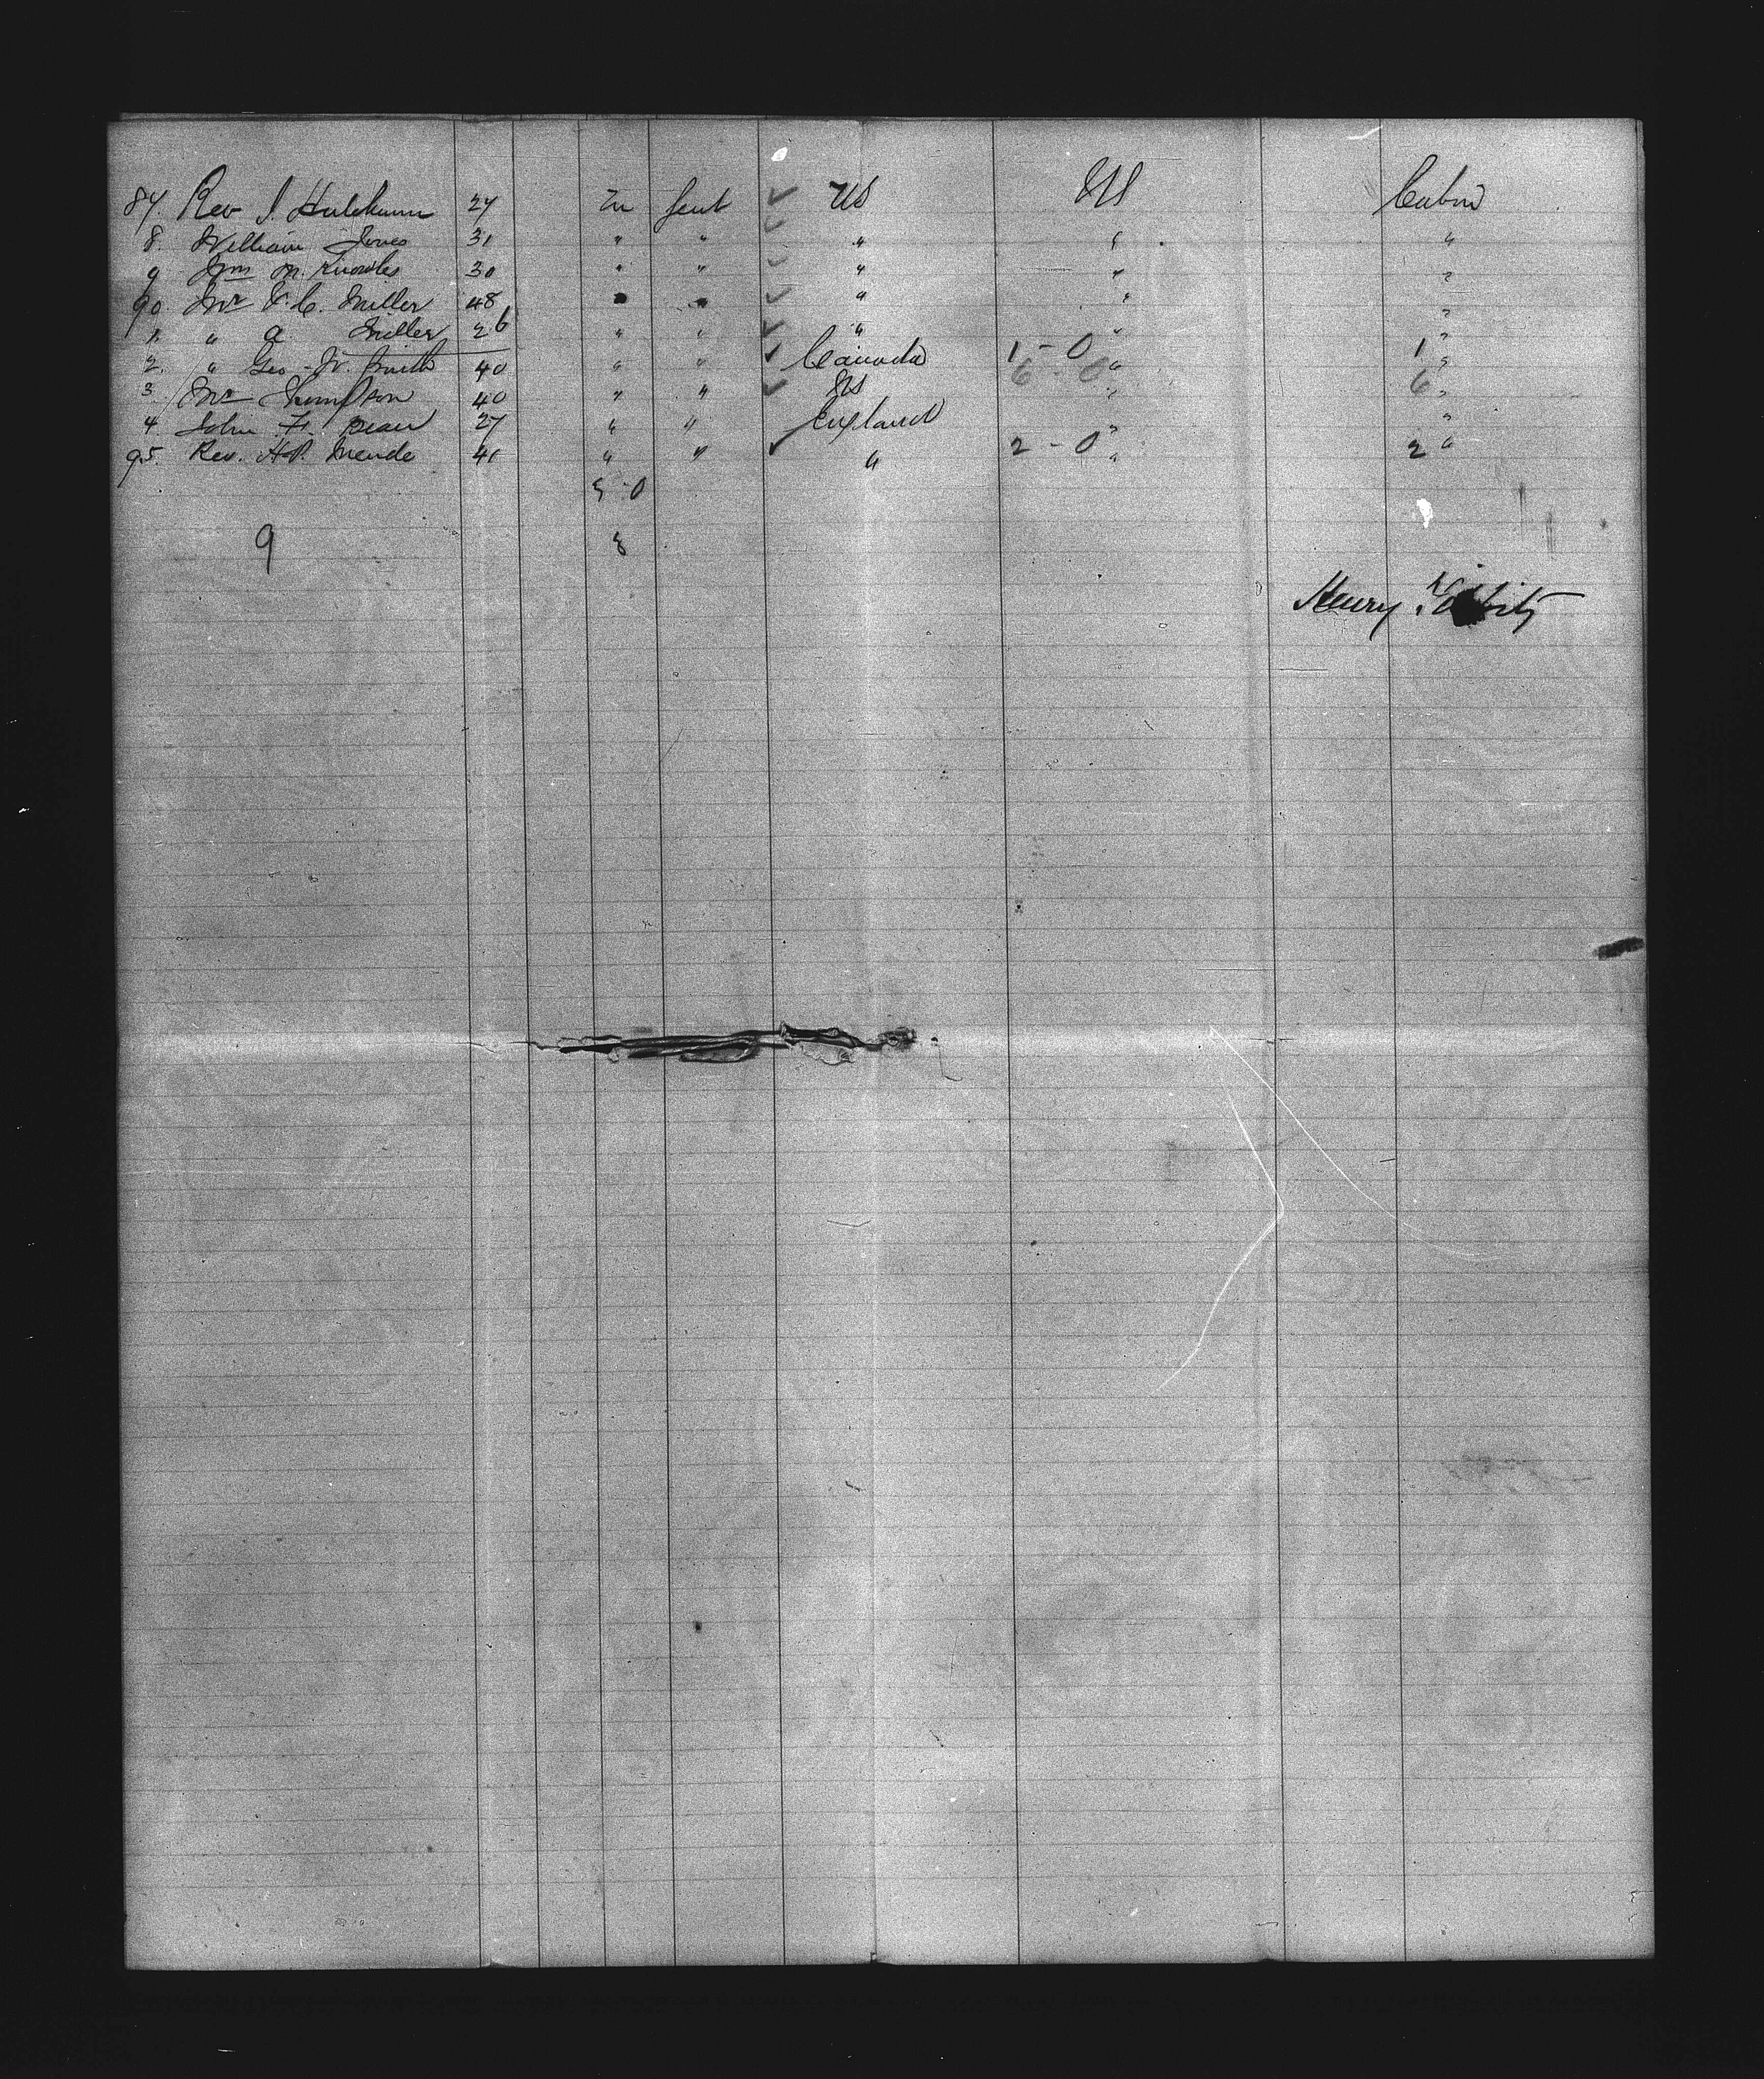 87. Rev J. 27 m Gent US US Cabin
8. William Jones 31 " " " " "
9 Wm M. Knowles 30 " " " " "
90. Mr F. C. Miller 48 " " " " "
1. " A. Miller 26 " " " " "
2. " Geo. W. Smith 40 " " Canada 1-0 " 1 "
3. Mr Thompson 40 " " US 6-0 " 6 "
4 John F. 27 " " England " "
95. Rev. H.P. 41 " " " 2-0 " 2 "
9
Henry